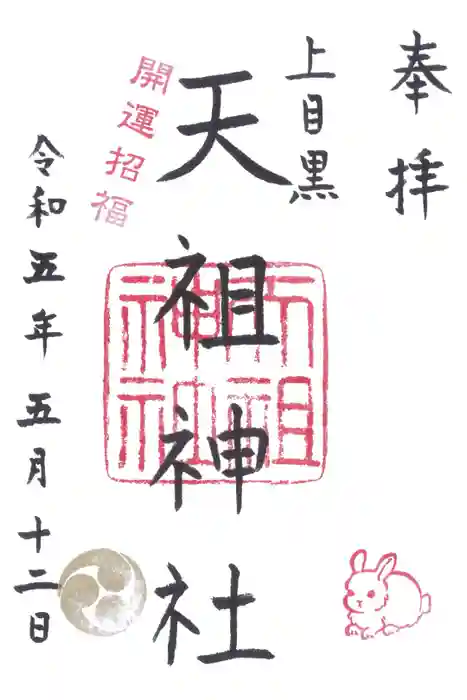 奉拝
上目黒
天祖神社
開運招福
天祖
神社
令和五年五月十二日